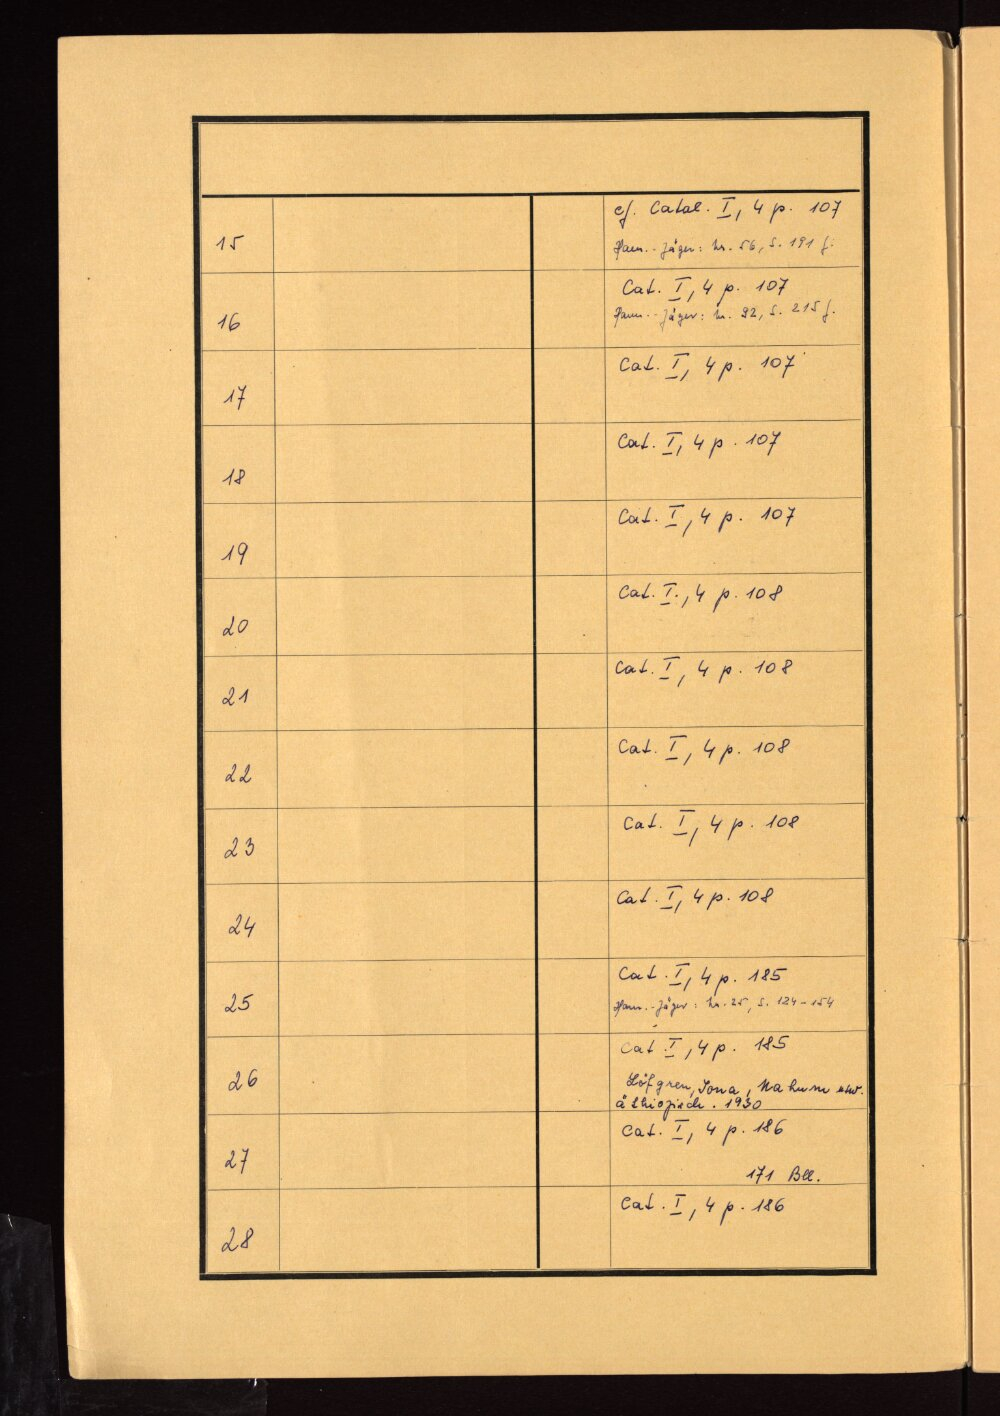 15
cf. Catal. I, 4 p. 107
Ham.-Jäger: Nr. 56, S. 191 f.
16
Cat. I, 4 p. 107
Ham.-Jäger: Nr. 92, S. 215 f.
17
Cat. I, 4 p. 107
18
Cat. I, 4 p. 107
19
Cat. I, 4 p. 107
20
Cat. I., 4 p. 108
21
Cat. I, 4 p. 108
22
Cat. I, 4 p. 108
23
Cat. I, 4 p. 108
24
Cat. I, 4 p. 108
25
Cat. I, 4 p. 185
Ham.-Jäger: Nr. 25, S. 124-154
26
Cat I, 4 p. 185
Löfgren, Jona, Nahum usw.
äthiopisch. 1930
27
Cat. I, 4 p. 186
171 Bll.
28
Cat. I, 4 p. 186